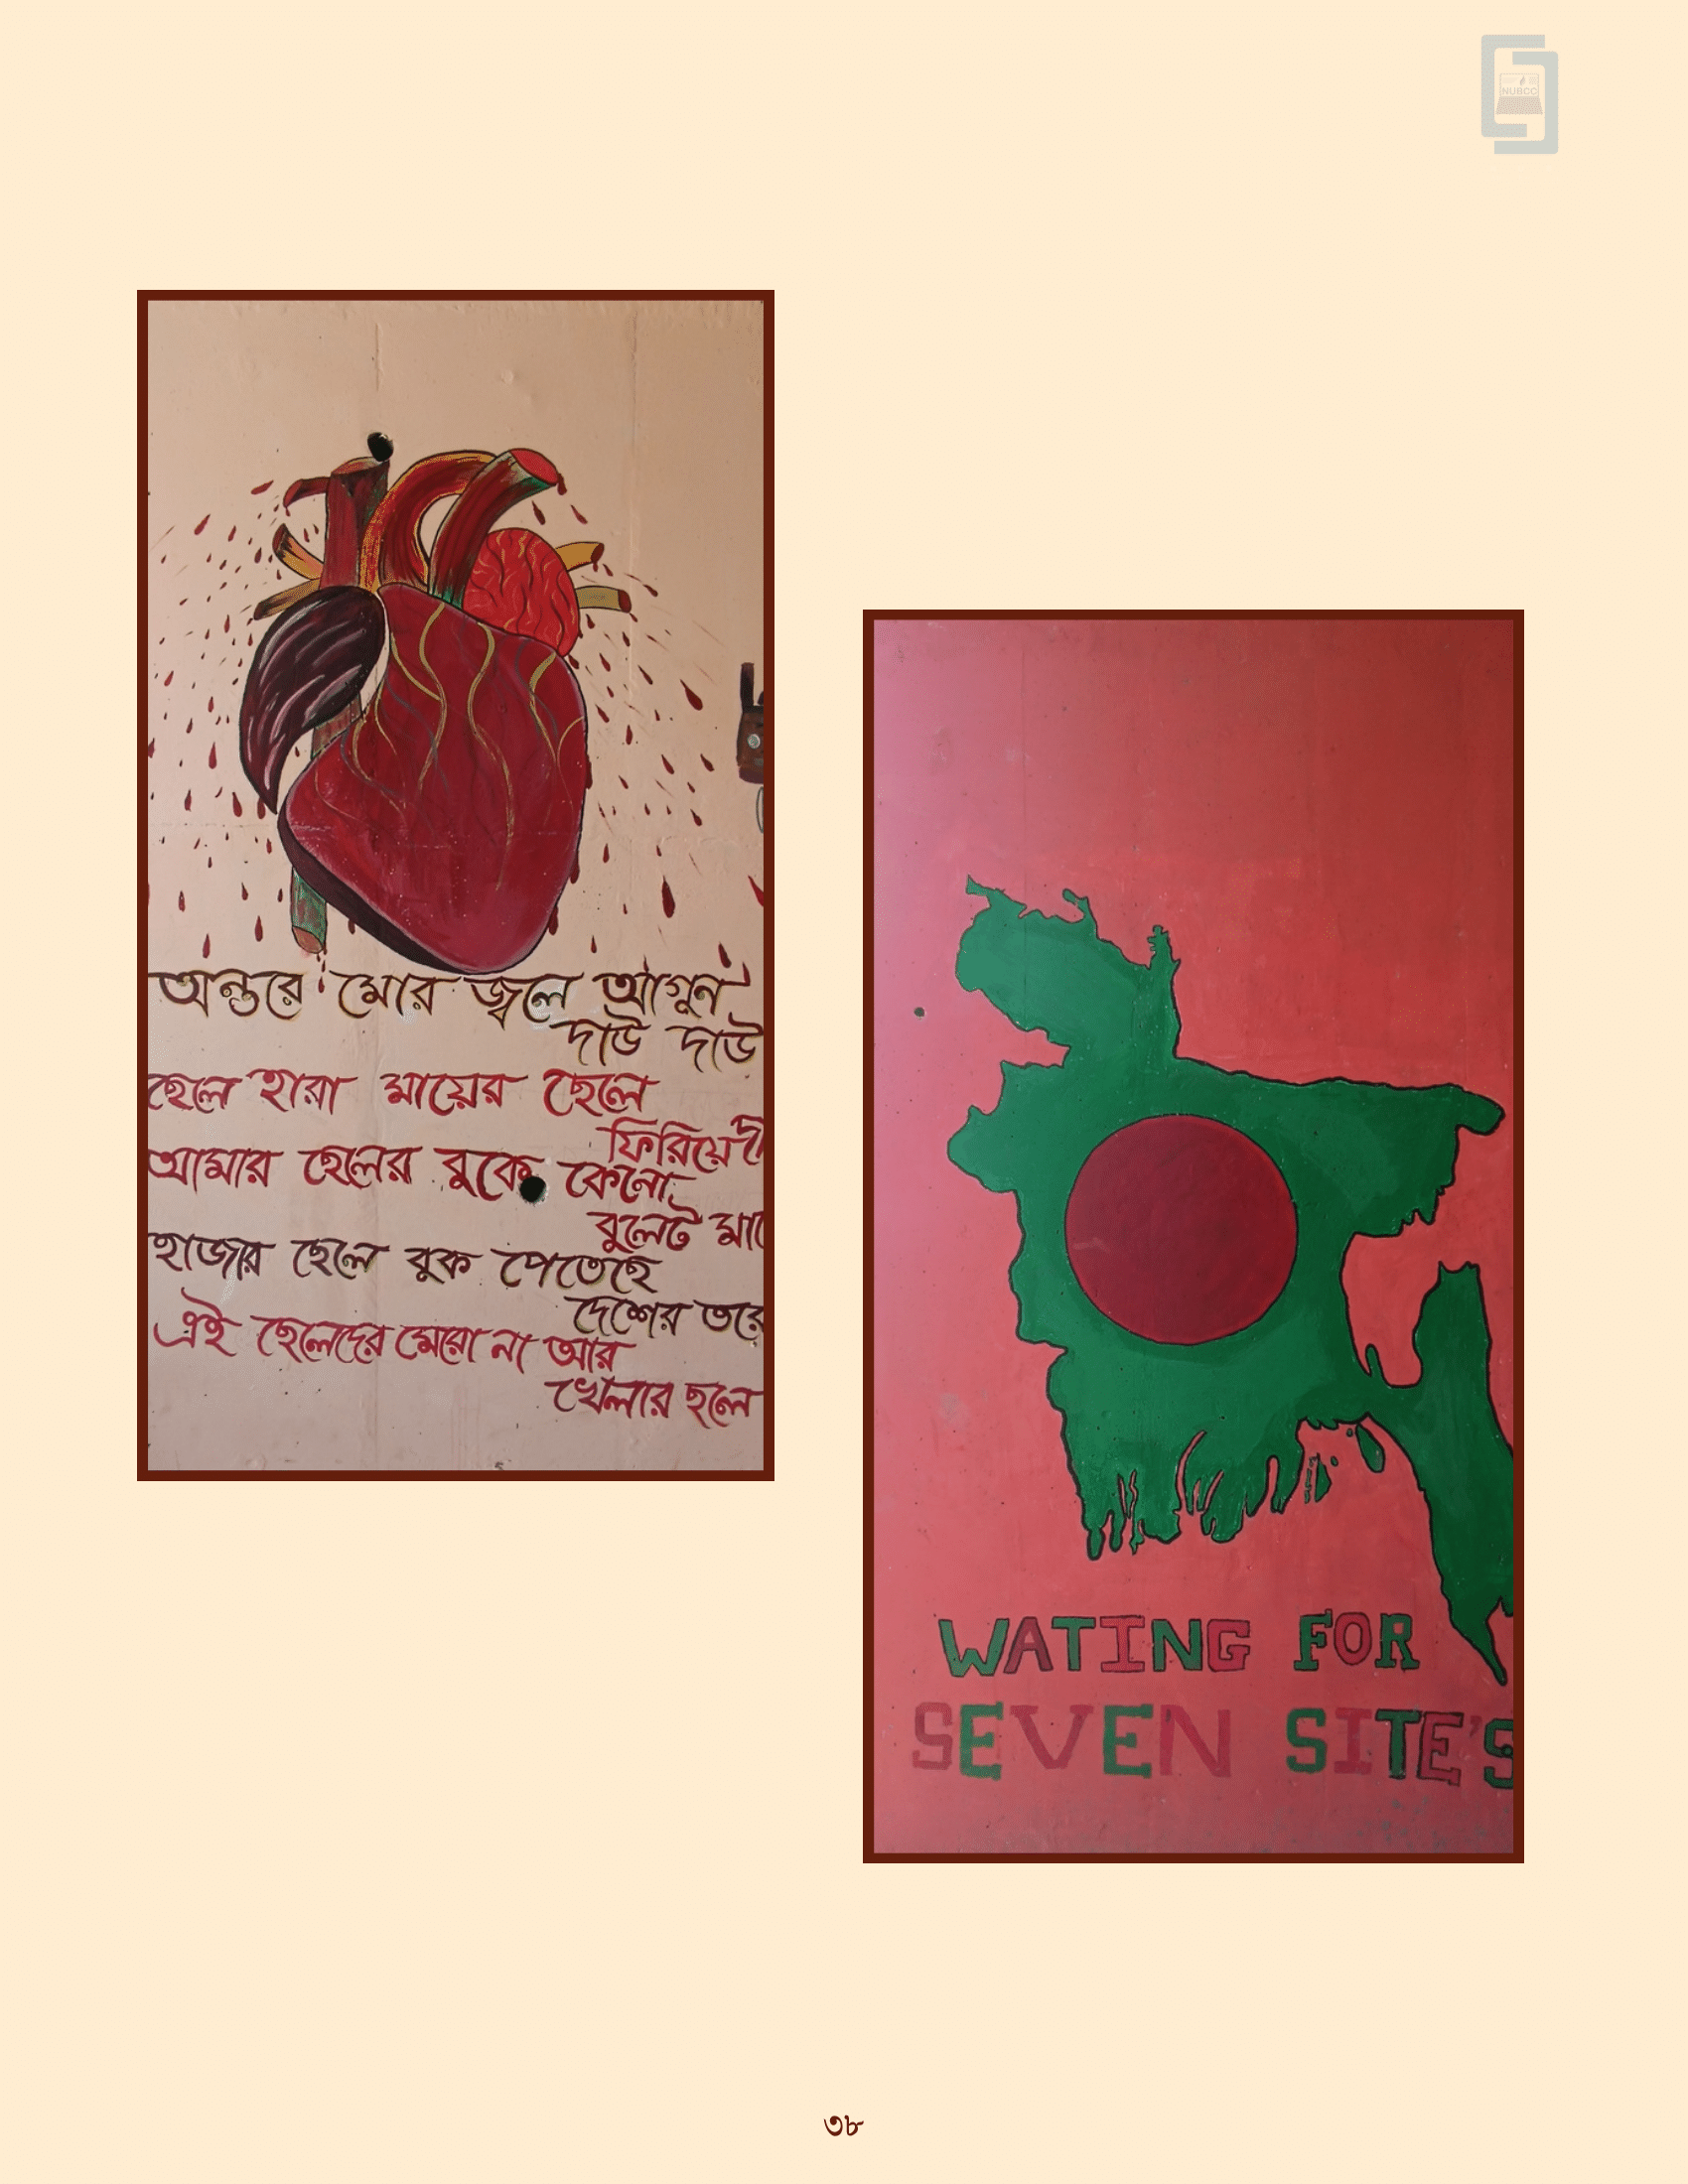 NUBCC
অন্তরে মোর জ্বলে আগুন
দাউ দাউ
ছেলে হারা মায়ের ছেলে
ফিরিয়ে
আমার ছেলের বুকে কেনো
বুলেট
হাজার ছেলে বুক পেতেছে
দেশের তরে
এই ছেলেদের মেরো না আর
খেলার ছলে
WATING FOR
SEVEN SITE'S
৩৮